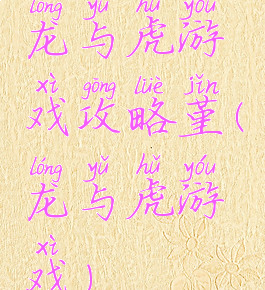 lóng yǔ hǔ yóu
龙与虎游
xì gōng lüè jǐn
戏攻略堇(
lóng yǔ hǔ yóu
龙与虎游
xì
戏)